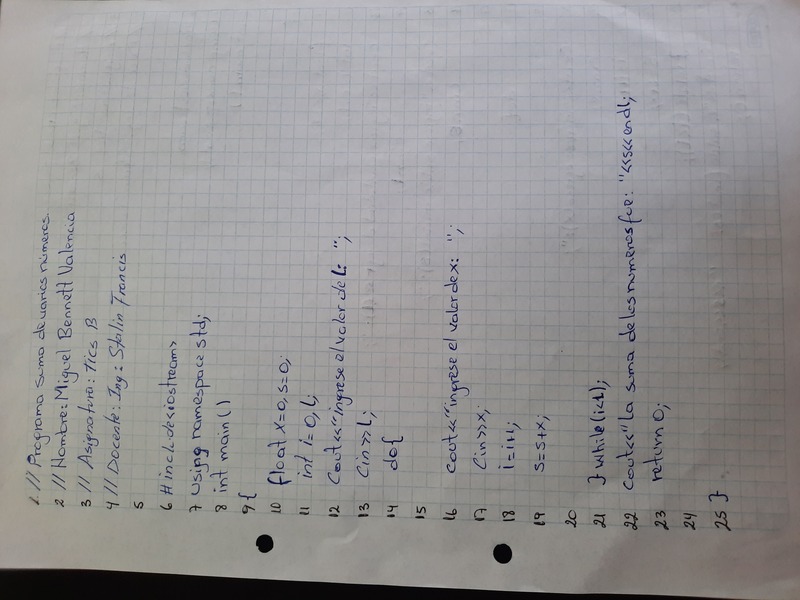 1 // Programa suma de varios números.
2 // Nombre: Miguel Bennett Valencia
3 // Asignatura: Tics B
4 // Docente: Ing: Stalin Francis
5
6 #include<iostream>
7 using namespace std;
8 int main()
9 {
10 float x=0, s=0;
11 int i=0, l;
12 Cout<<"ingrese el valor de l: ";
13 Cin>>l;
14 do{
15
16 cout<<"ingrese el valor de x: ";
17 Cin>>x;
18 i=i+1;
19 s=s+x;
20
21 } while(i<l);
22 cout<<"la suma de los numeros fue: "<<s<<endl;
23 return 0;
24
25 }